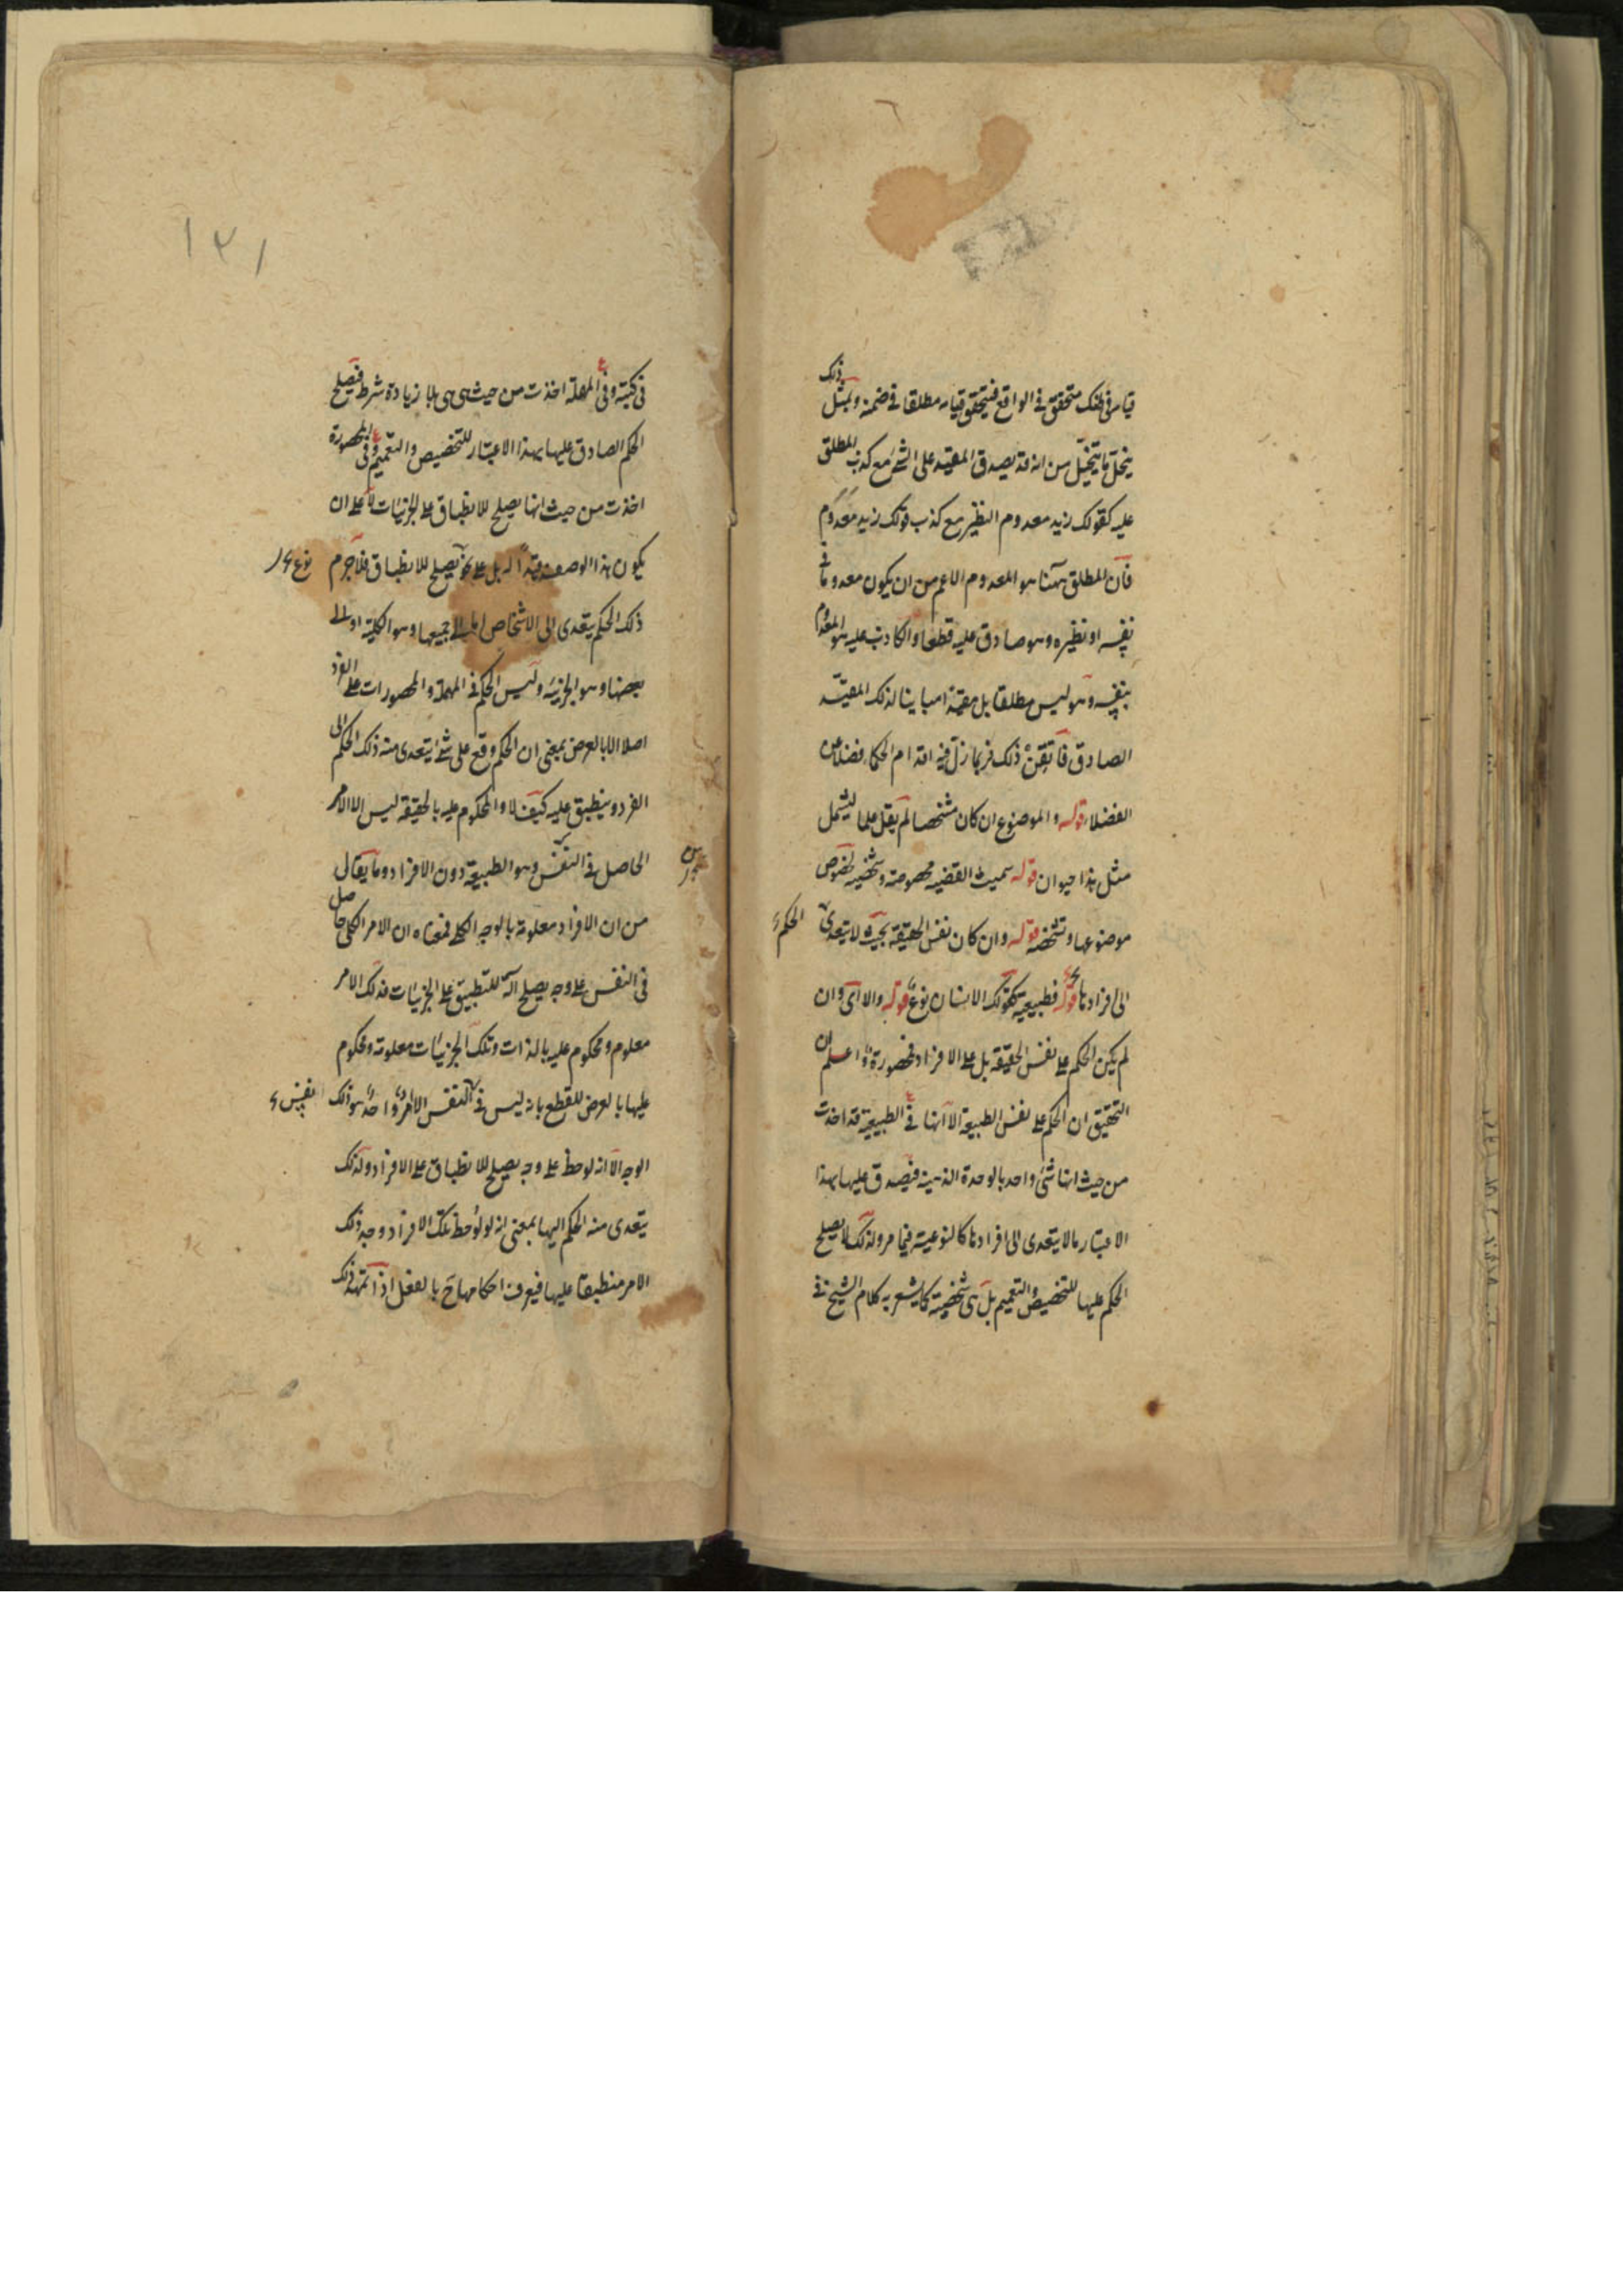 قيامه في ظنك متحقق في الواقع فيتحقق قيامه مطلقا في ضمنه وبمثل ذلك
ينحل ما يتخيل من انه قد يصدق المقيد على الشئ مع كذب المطلق
عليه كقولك زيد معدوم النظير مع كذب قولك زيد معدوم
فان المطلق ههنا هو المعدوم الاعم من ان يكون معدوما في
نفسه او نظيره وهو صادق عليه قطعا والكاذب عليه هو المعدوم
بنفسه وهو ليس مطلقا بل مقيدا مباينا لذلك المقيد
الصادق فاتقن ذلك فربما زل فيه اقدام الحكماء فضلا عن
الفضلاء قوله والموضوع ان كان مشخصا لم يقل علما ليشمل
مثل هذا حيوان قوله سميت القضيه مخصوصة وشخصيه لخصوص
موضوعها وتشخصه قوله وان كان نفس الحقيقة بحيث لا يتعدى
الحكم
الى افرادها قوله فطبيعية كقولك الانسان نوع قوله والا اى وان
لم يكن الحكم على نفس الحقيقة بل على الافراد فمحصورة واعلم ان
التحقيق ان الحكم على نفس الطبيعة الا انها في الطبيعية قد اخذت
من حيث انها شئ واحد بالوحدة الذهنية فيصدق عليها بهذا
الاعتبار ما لا يتعدى الى افرادها كالنوعية فيما مر ولذلك لا يصلح
الحكم عليها للتخصيص والتعميم بل هي شخصية كما يشعر به كلام الشيخ في
١٢١
في كميته وفي المهملة اخذت من حيث هي هي بلا زيادة شرط فيصلح
الحكم الصادق عليها بهذا الاعتبار للتخصيص والتعميم وفي المحصورة
اخذت من حيث انها يصلح للانطباق على الجزئيات لا على ان
يكون هذا الوصف قيدا له بل على نحو يصلح للانطباق فلا جرم
ذلك الحكم يتعدى الى الاشخاص اما الى جميعها وهو الكلية او الى
بعضها وهو الجزئية وليس الحكم في المهملة والمحصورات على الفرد
اصلا الا بالعرض بمعنى ان الحكم وقع على شئ يتعدى منه ذلك الحكم الى
الفرد وينطبق عليه كيف لا والمحكوم عليه بالحقيقة ليس الا الامر
الحاصل في النفس وهو الطبيعة دون الافراد وما يقال
من ان الافراد معلومة بالوجه الكلى فمعناه ان الامر الكلى حاصل
في النفس على وجه يصلح آلة للتطبيق على الجزئيات فذلك الامر
معلوم ومحكوم عليه بالذات وتلك الجزئيات معلومة ومحكوم
عليها بالعرض للقطع بانه ليس في النفس الا امر واحد هو ذلك
الوجه الا انه لوحظ على وجه يصلح للانطباق على الافراد ولذلك
يتعدى منه الحكم اليها بمعنى انه لو لوحظ تلك الافراد وجد ذلك
الامر منطبقا عليها فيعرف احكامها ح بالفعل اذا تمهد ذلك